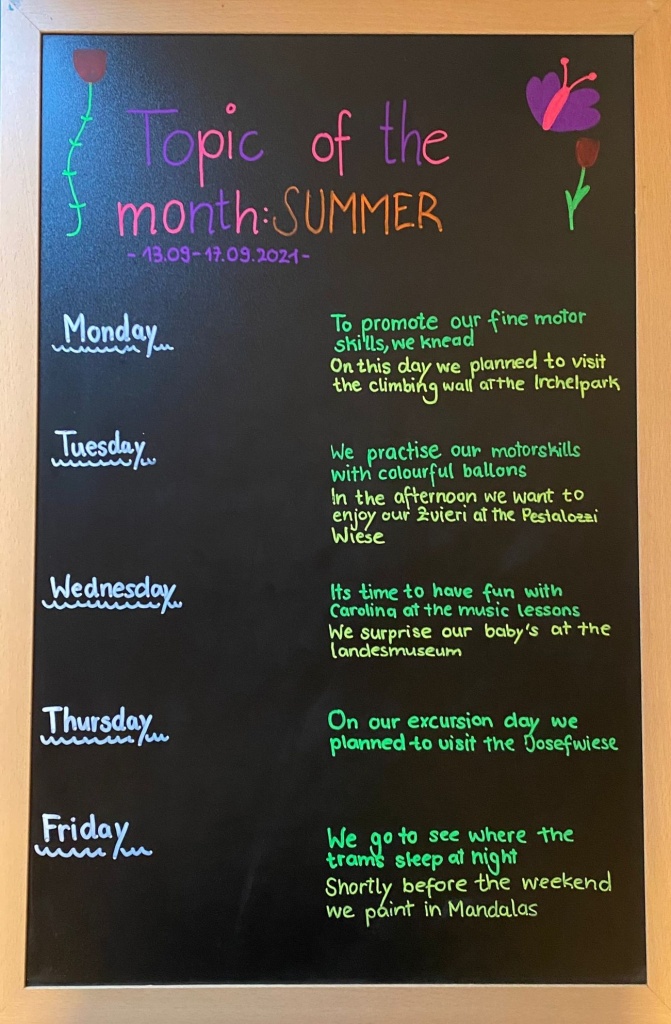 Topic of the
month: SUMMER
- 13.09-17.09.2021-
Monday
To promote our fine motor
skills, we knead
On this day we planned to visit
the climbing wall at the Irchelpark
Tuesday
We practise our motorskills
with colourful ballons
In the afternoon we want to
enjoy our Zvieri at the Pestalozzi
Wiese
Wednesday
Its time to have fun with
Carolina at the music lessons
We surprise our baby's at the
landesmuseum
Thursday
On our excursion day we
planned to visit the Josefwiese
Friday
We go to see where the
trams sleep at night
Shortly before the weekend
we paint in Mandalas